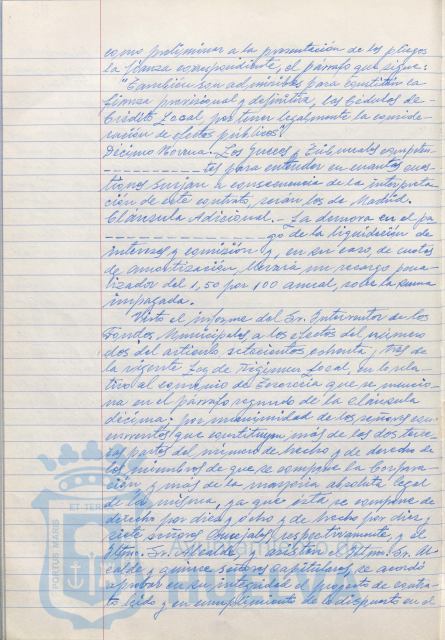 como preliminar a la presentación de los pliegos
la fianza correspondiente, el párrafo que sigue:
"También son admisibles para constituir la
fianza provisional y definitiva, las Cédulas de
Crédito Local por tener legalmente la conside-
ración de efectos públicos".
Décimo Novena: Los Jueces y Tribunales competen-
tes para entender en cuantas cues-
tiones surjan a consecuencia de la interpreta-
ción de este contrato, serán los de Madrid.
Cláusula Adicional.- La demora en el pa-
go de la liquidación de
intereses y comisión y, en su caso, de cuotas
de amortización, llevará un recargo pena-
lizador del 1,50 por 100 anual, sobre la suma
impagada.
Visto el informe del Sr. Interventor de los
Fondos Municipales, a los efectos del número
dos del artículo setecientos ochenta y tres de
la vigente Ley de Régimen Local, en lo rela-
tivo al convenio de Tesorería que se mencio-
na en el párrafo segundo de la cláusula
décima; por unanimidad de los señores con-
currentes que constituyen más de las dos terce-
ras partes del número de hecho y de derecho de
los miembros de que se compone la Corpora-
ción y más de la mayoría absoluta legal
de la misma, ya que ésta se compone de
derecho por diez y ocho y de hecho por diez y
siete señores Concejales, respectivamente, y el
Iltmo. Sr. Alcalde, y asisten el Iltmo. Sr. Al-
calde y quince señores capitulares, se acordó
aprobar en su integridad el proyecto de contra-
to leído y en cumplimiento de lo dispuesto en el
PORTUS MARIS
ET TERR